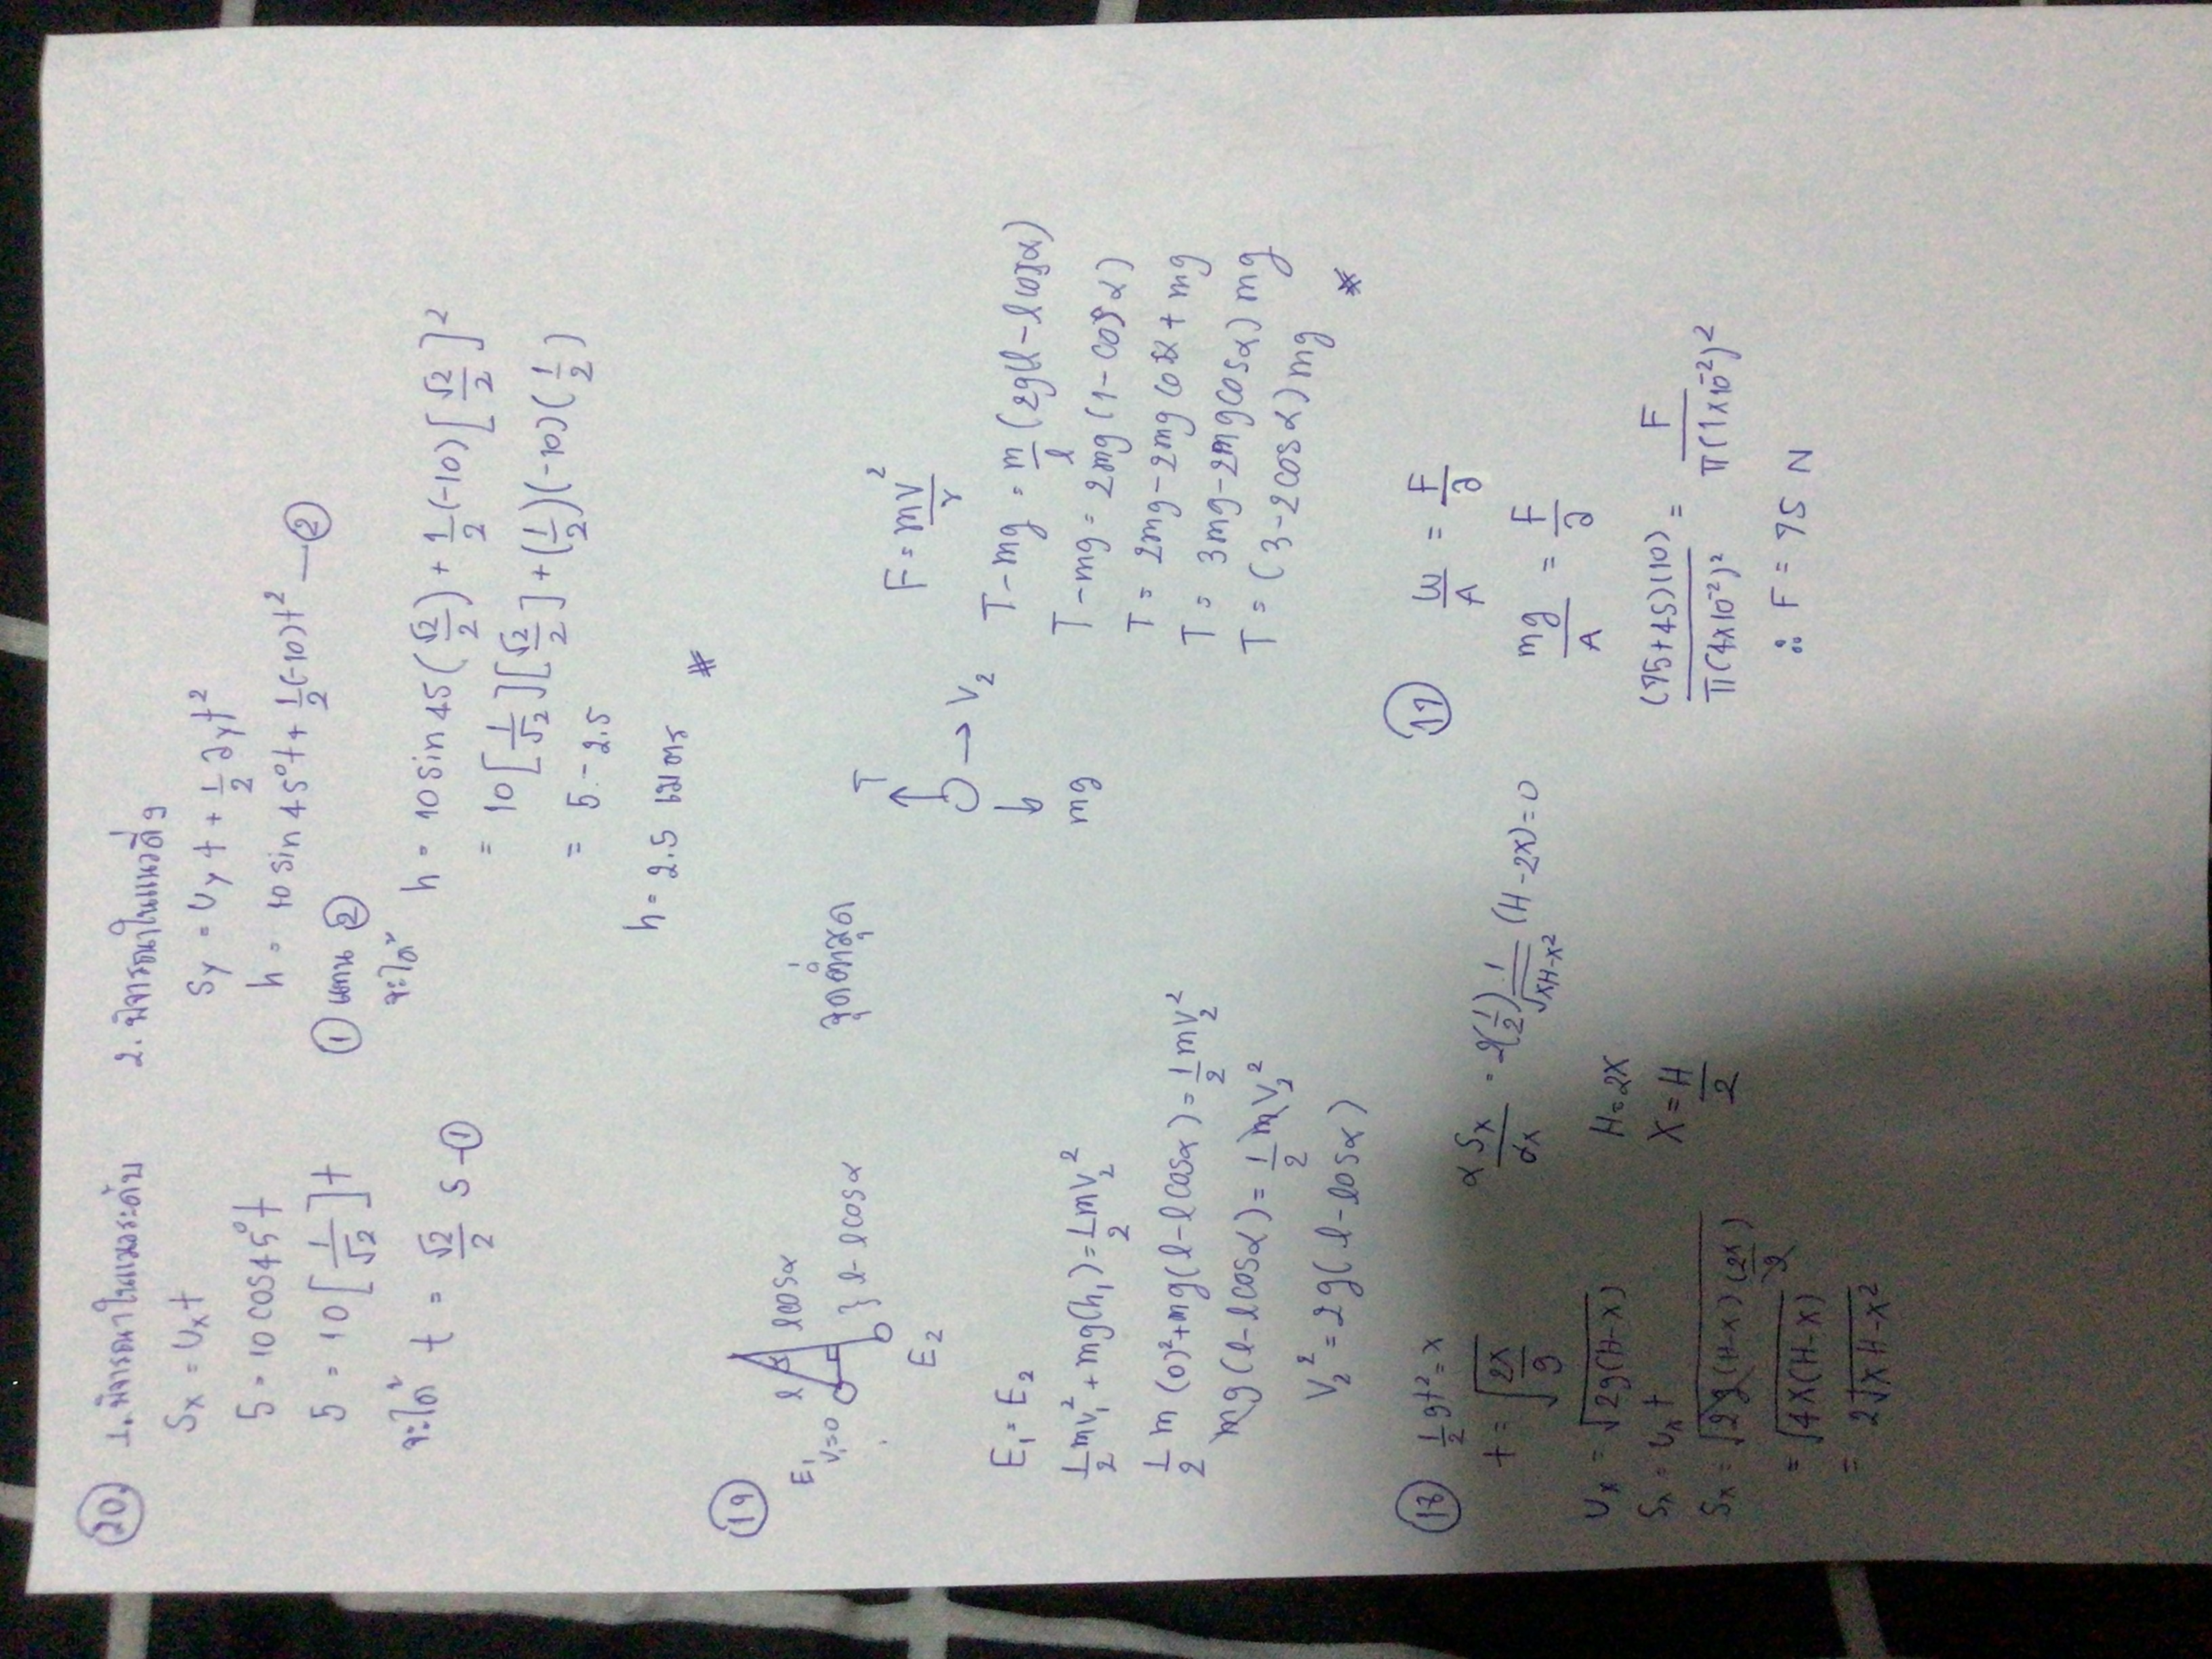 20. 1. พิจารณาในแนวระดับ
Sx = Ux t
5 = 10 cos45° t
5 = 10 [1/√2] t
จะได้ t = √2/2 s —①
2. พิจารณาในแนวดิ่ง
Sy = Uy t + 1/2 ay t²
h = 10 sin 45° t + 1/2 (-10) t² —②
① แทน ②
จะได้
h = 10 sin 45 (√2/2) + 1/2 (-10) [√2/2]²
= 10 [1/√2] [√2/2] + (1/2)(-10)(1/2)
= 5 - 2.5
h = 2.5 เมตร
#
19
E₁
V₁=0
l
α
lcosα
} l - lcosα
E₂
E₁ = E₂
1/2 mv₁² + mg(h₁) = 1/2 mv₂²
1/2 m (0)² + mg(l - lcosα) = 1/2 mv₂²
mg(l - lcosα) = 1/2 mv₂²
V₂² = 2g(l - losα)
จุดต่ำสุด
T
→ V₂
mg
F = mv²/r
T - mg = m/l (2g(l - lcosα)
T - mg = 2mg (1 - cosα)
T = 2mg - 2mg cosα + mg
T = 3mg - 2mgcosα) mg
T = (3 - 2cosα) mg
#
18 1/2 gt² = x
t = √(2x/g)
Ux = √(2g(H-x))
Sx = Ux t
Sx = √(2g(H-x)(2x/g))
= √(4x(H-x))
= 2√(xH-x²)
α Sx/αx = 2(1/2) 1/√(xH-x²) (H-2x) = 0
H = 2x
X = H/2
17
W/A = F/a
mg/A = F/a
(75+45)(10)/π(4x10⁻²)² = F/π(1x10⁻²)²
∴ F = 75 N